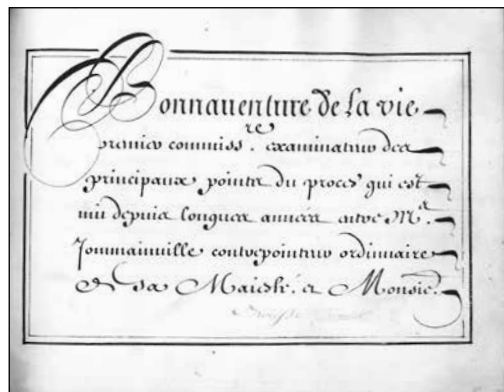 Bonnauenture de la vie
premier commiss.re examinateur des
principaux points du proces qui est
mû depuis longues années entre M.e
Jommainville contrepointeur ordinaire
de sa Maiesté. et Monsie.r